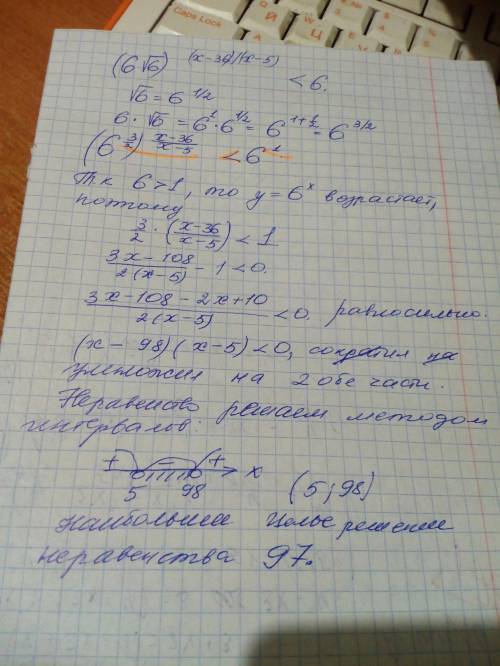 (6√6)^((x-36)/(x-5)) < 6.
√6 = 6^(1/2)
6·√6 = 6^1·6^(1/2) = 6^(1+1/2) = 6^(3/2)
(6^(3/2))^((x-36)/(x-5)) < 6^1
Т.к 6>1, то y=6^x возрастает,
поэтому
3/2 · ((x-36)/(x-5)) < 1
(3x-108)/(2(x-5)) - 1 < 0.
(3x-108-2x+10)/(2(x-5)) < 0 равносильно
(x-98)(x-5)<0,
умножил на 2 обе части.
Неравенство решаем методом
интервалов:
+ - + x
5 98 (5;98)
наибольшее целое решение
неравенства 97.